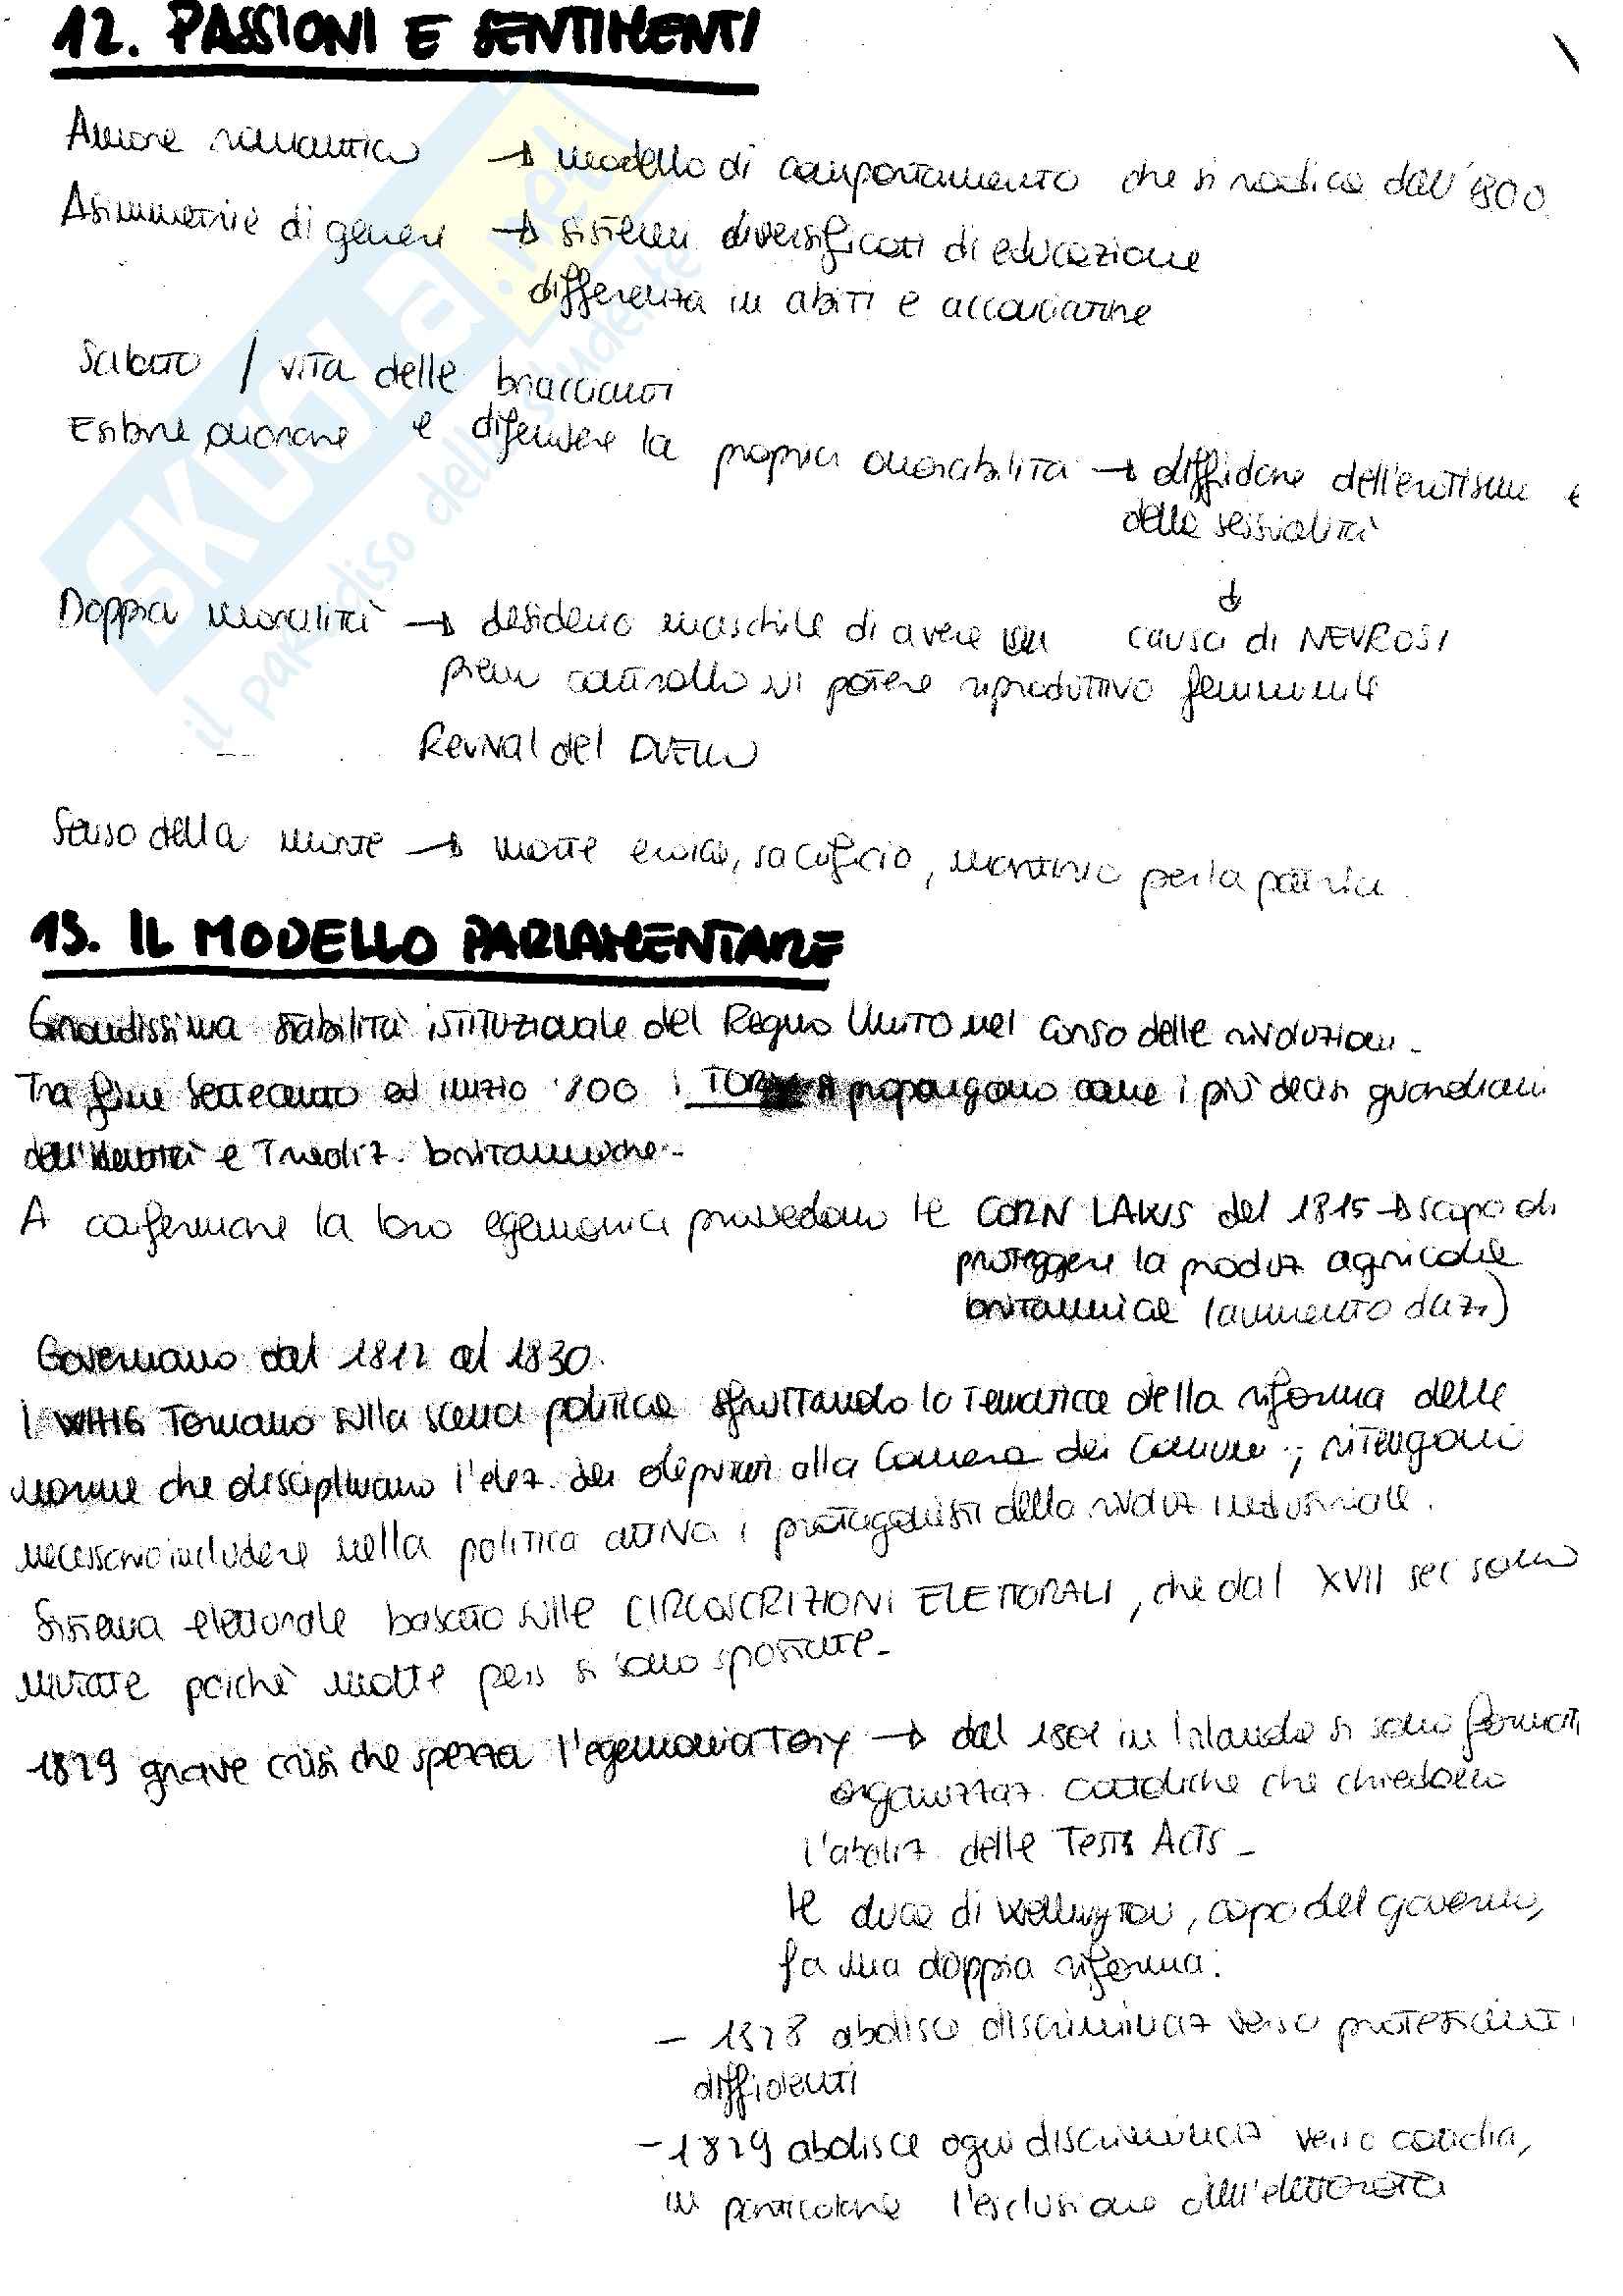 12. PASSIONI E SENTIMENTI
Amore romantico → modello di comportamento che si radica dall'800
Asimmetrie di genere → sistemi diversificati di educazione
differenza in abiti e acconciature
Salotto / vita delle braccianti
Esibire pudore e difendere la propria onorabilità → diffidare dell'erotismo e
della sessialità
↓
causa di NEVROSI
Doppia moralità → desiderio maschile di avere un
pieno controllo sul potere riproduttivo femminile
Revival del DUELLO
Senso della morte → morte eroica, sacrificio, martirio per la patria
13. IL MODELLO PARLAMENTARE
Grandissima stabilità istituzionale del Regno Unito nel corso delle rivoluzioni.
Tra fine Settecento ed inizio '800 i TORY si propongono come i più decisi guardiani
dell'identità e tradiz. britanniche.
A confermare la loro egemonia provvedono le CORN LAWS del 1815 → scopo di
proteggere la produz agricola
britannica (aumento dazi)
Governano dal 1812 al 1830.
I WHIG tornano sulla scena politica sfruttando la tematica della riforma delle
norme che disciplinano l'elez. dei deputati alla Camera dei Comuni; ritengono
necessario includere nella politica attiva i protagonisti della rivoluz industriale.
Sistema elettorale basato sulle CIRCOSCRIZIONI ELETTORALI, che dal XVII sec sono
mutate poichè molte pers si sono spostate.
1829 grave crisi che spezza l'egemonia Tory → dal 1801 in Irlanda si sono formati
organizzaz. cattoliche che chiedono
l'aboliz. delle Tests Acts.
Il duca di Wellington, capo del governo,
fa una doppia riforma:
- 1828 abolisce discriminaz verso protestanti
diffidenti
- 1829 abolisce ogni discriminaz verso cattolici,
in particolare l'esclusione dall'elettorato
SKUOLA.net
il paradiso dello studente